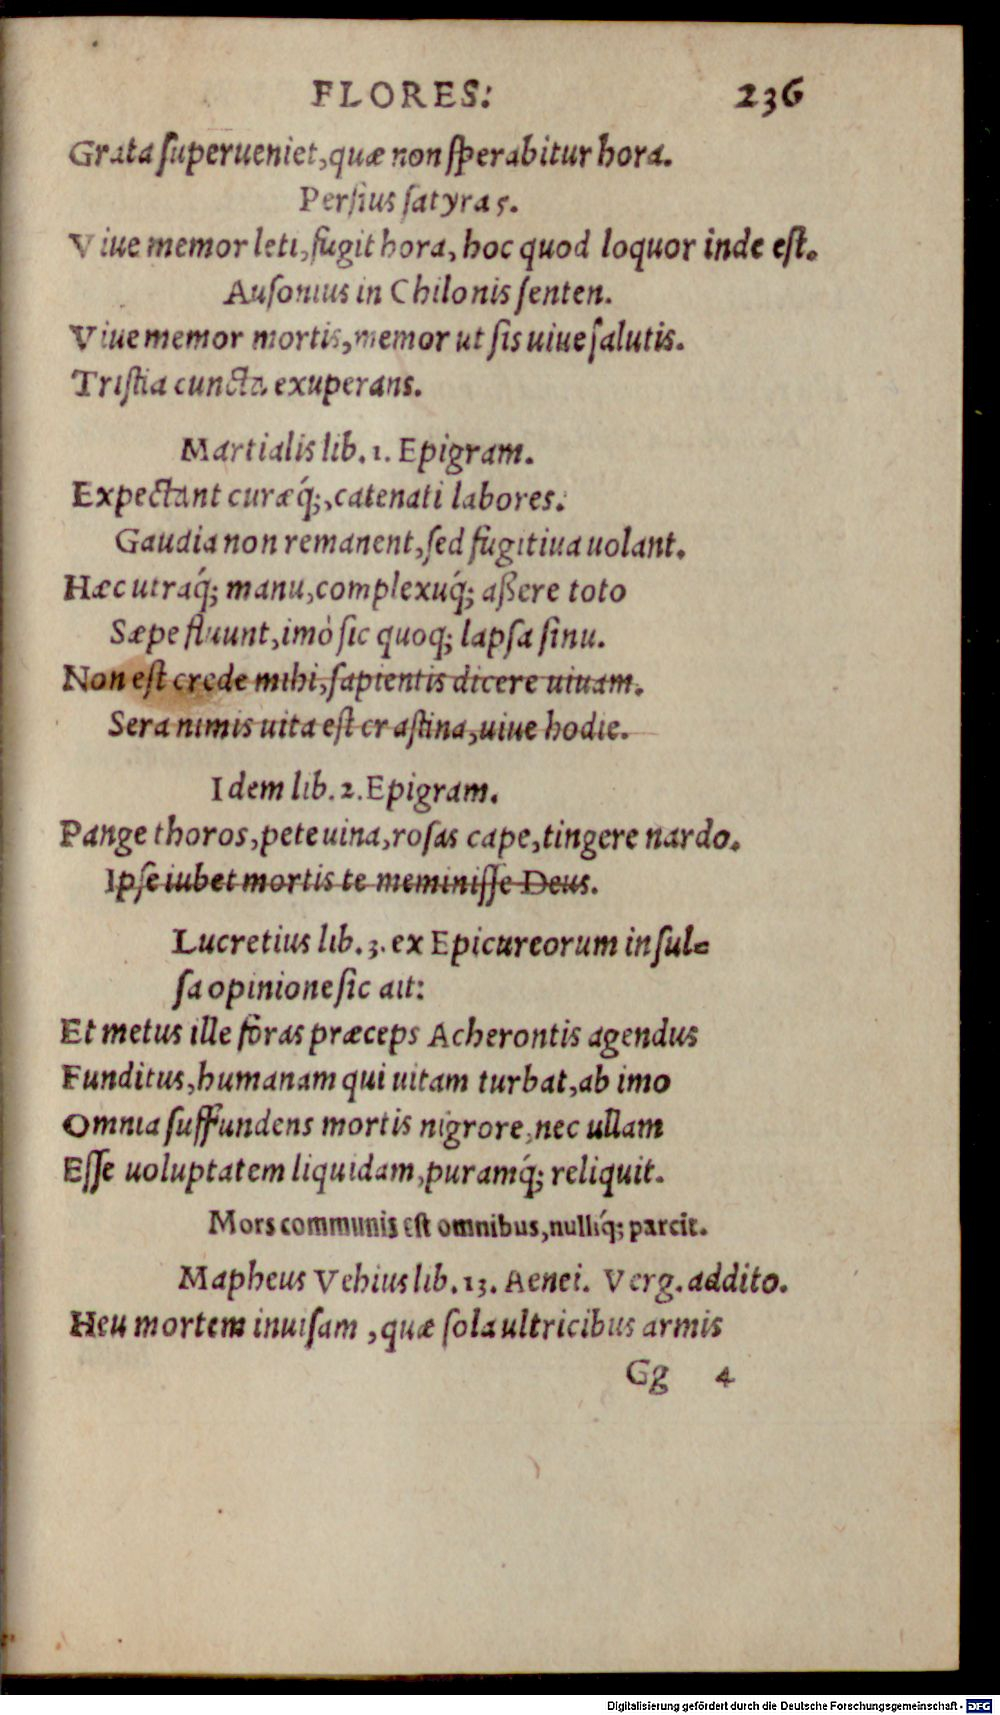 FLORES: 236
Grata superueniet, quæ non sperabitur hora.
Persius satyra 5.
Viue memor leti, fugit hora, hoc quod loquor inde est.
Ausonius in Chilonis senten.
Viue memor mortis, memor ut sis uiue salutis.
Tristia cuncta exuperans.
Martialis lib. 1. Epigram.
Expectant curæq́;, catenati labores:
Gaudia non remanent, sed fugitiua uolant.
Hæc utraq́; manu, complexuq́; aßere toto
Sæpe fluunt, imò sic quoq; lapsa sinu.
Non est crede mihi, sapientis dicere uiuam.
Sera nimis uita est crastina, uiue hodie.
Idem lib. 2. Epigram.
Pange thoros, pete uina, rosas cape, tingere nardo.
Ipse iubet mortis te meminisse Deus.
Lucretius lib. 3. ex Epicureorum insul=
sa opinione sic ait:
Et metus ille foras præceps Acherontis agendus
Funditus, humanam qui uitam turbat, ab imo
Omnia suffundens mortis nigrore, nec ullam
Esse uoluptatem liquidam, puramq́; reliquit.
Mors communis est omnibus, nulliq́; parcit.
Mapheus Vehius lib. 13. Aenei. Verg. addito.
Heu mortem inuisam, quæ sola ultricibus armis
Gg 4
Digitalisierung gefördert durch die Deutsche Forschungsgemeinschaft - DFG